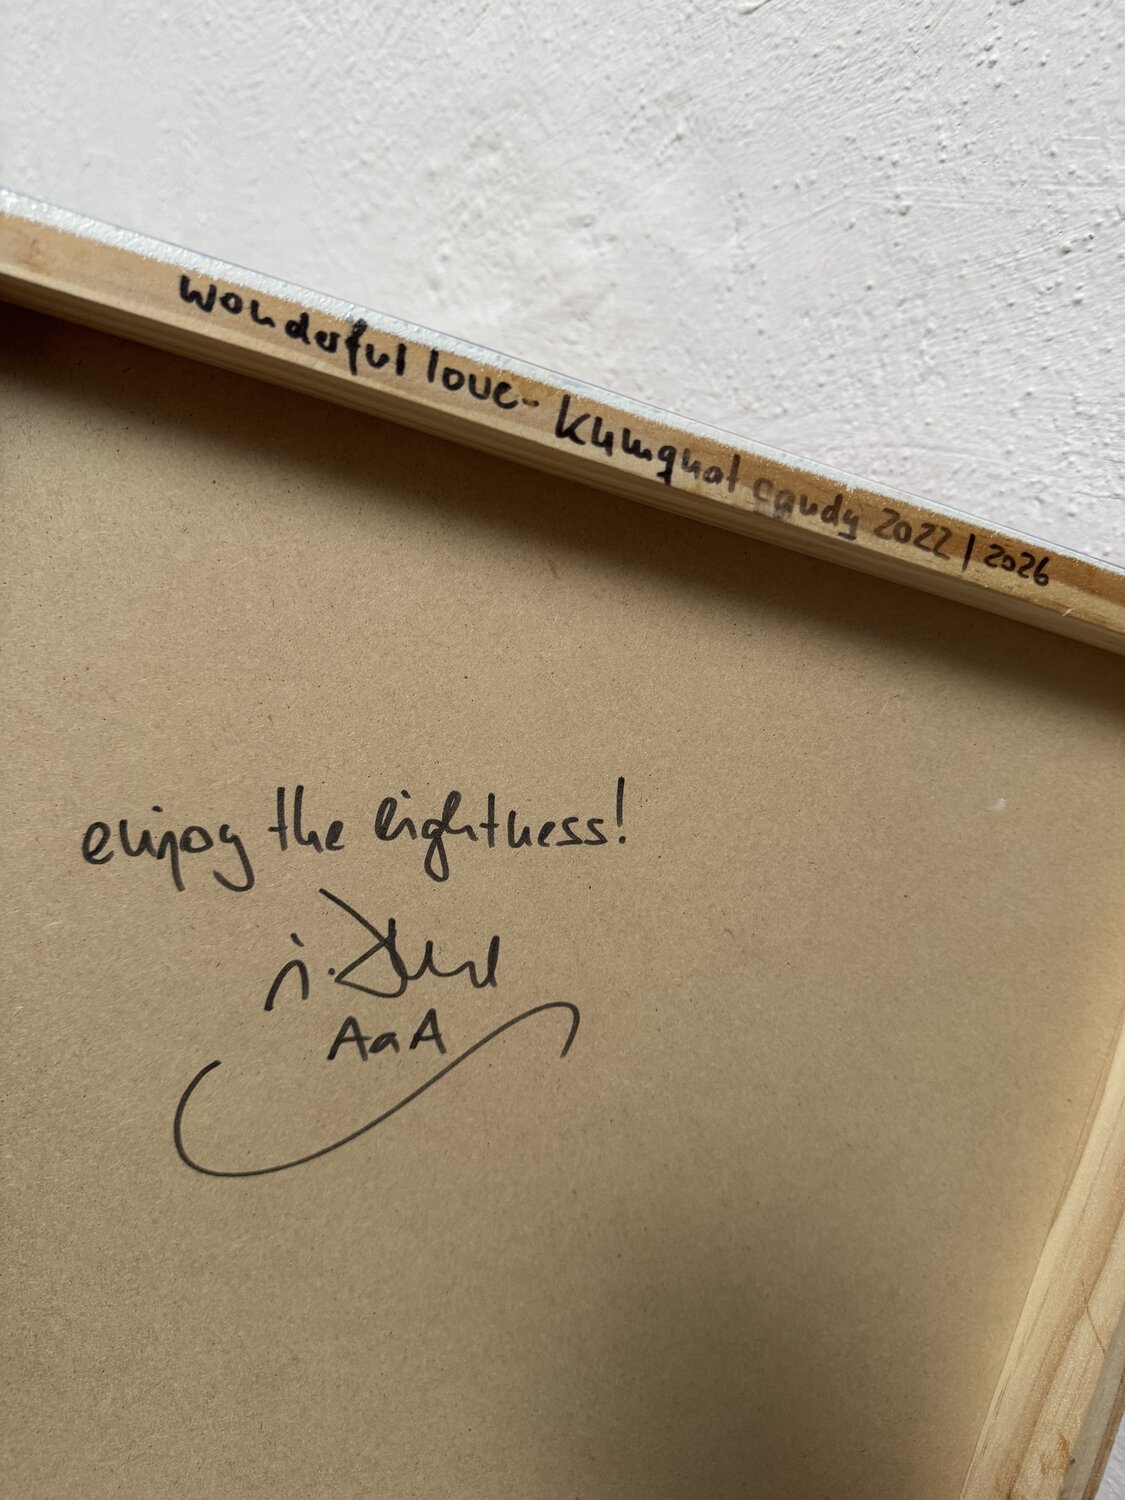 wonderful love - Kumquat candy 2022 | 2026
enjoy the lightness!
AaA